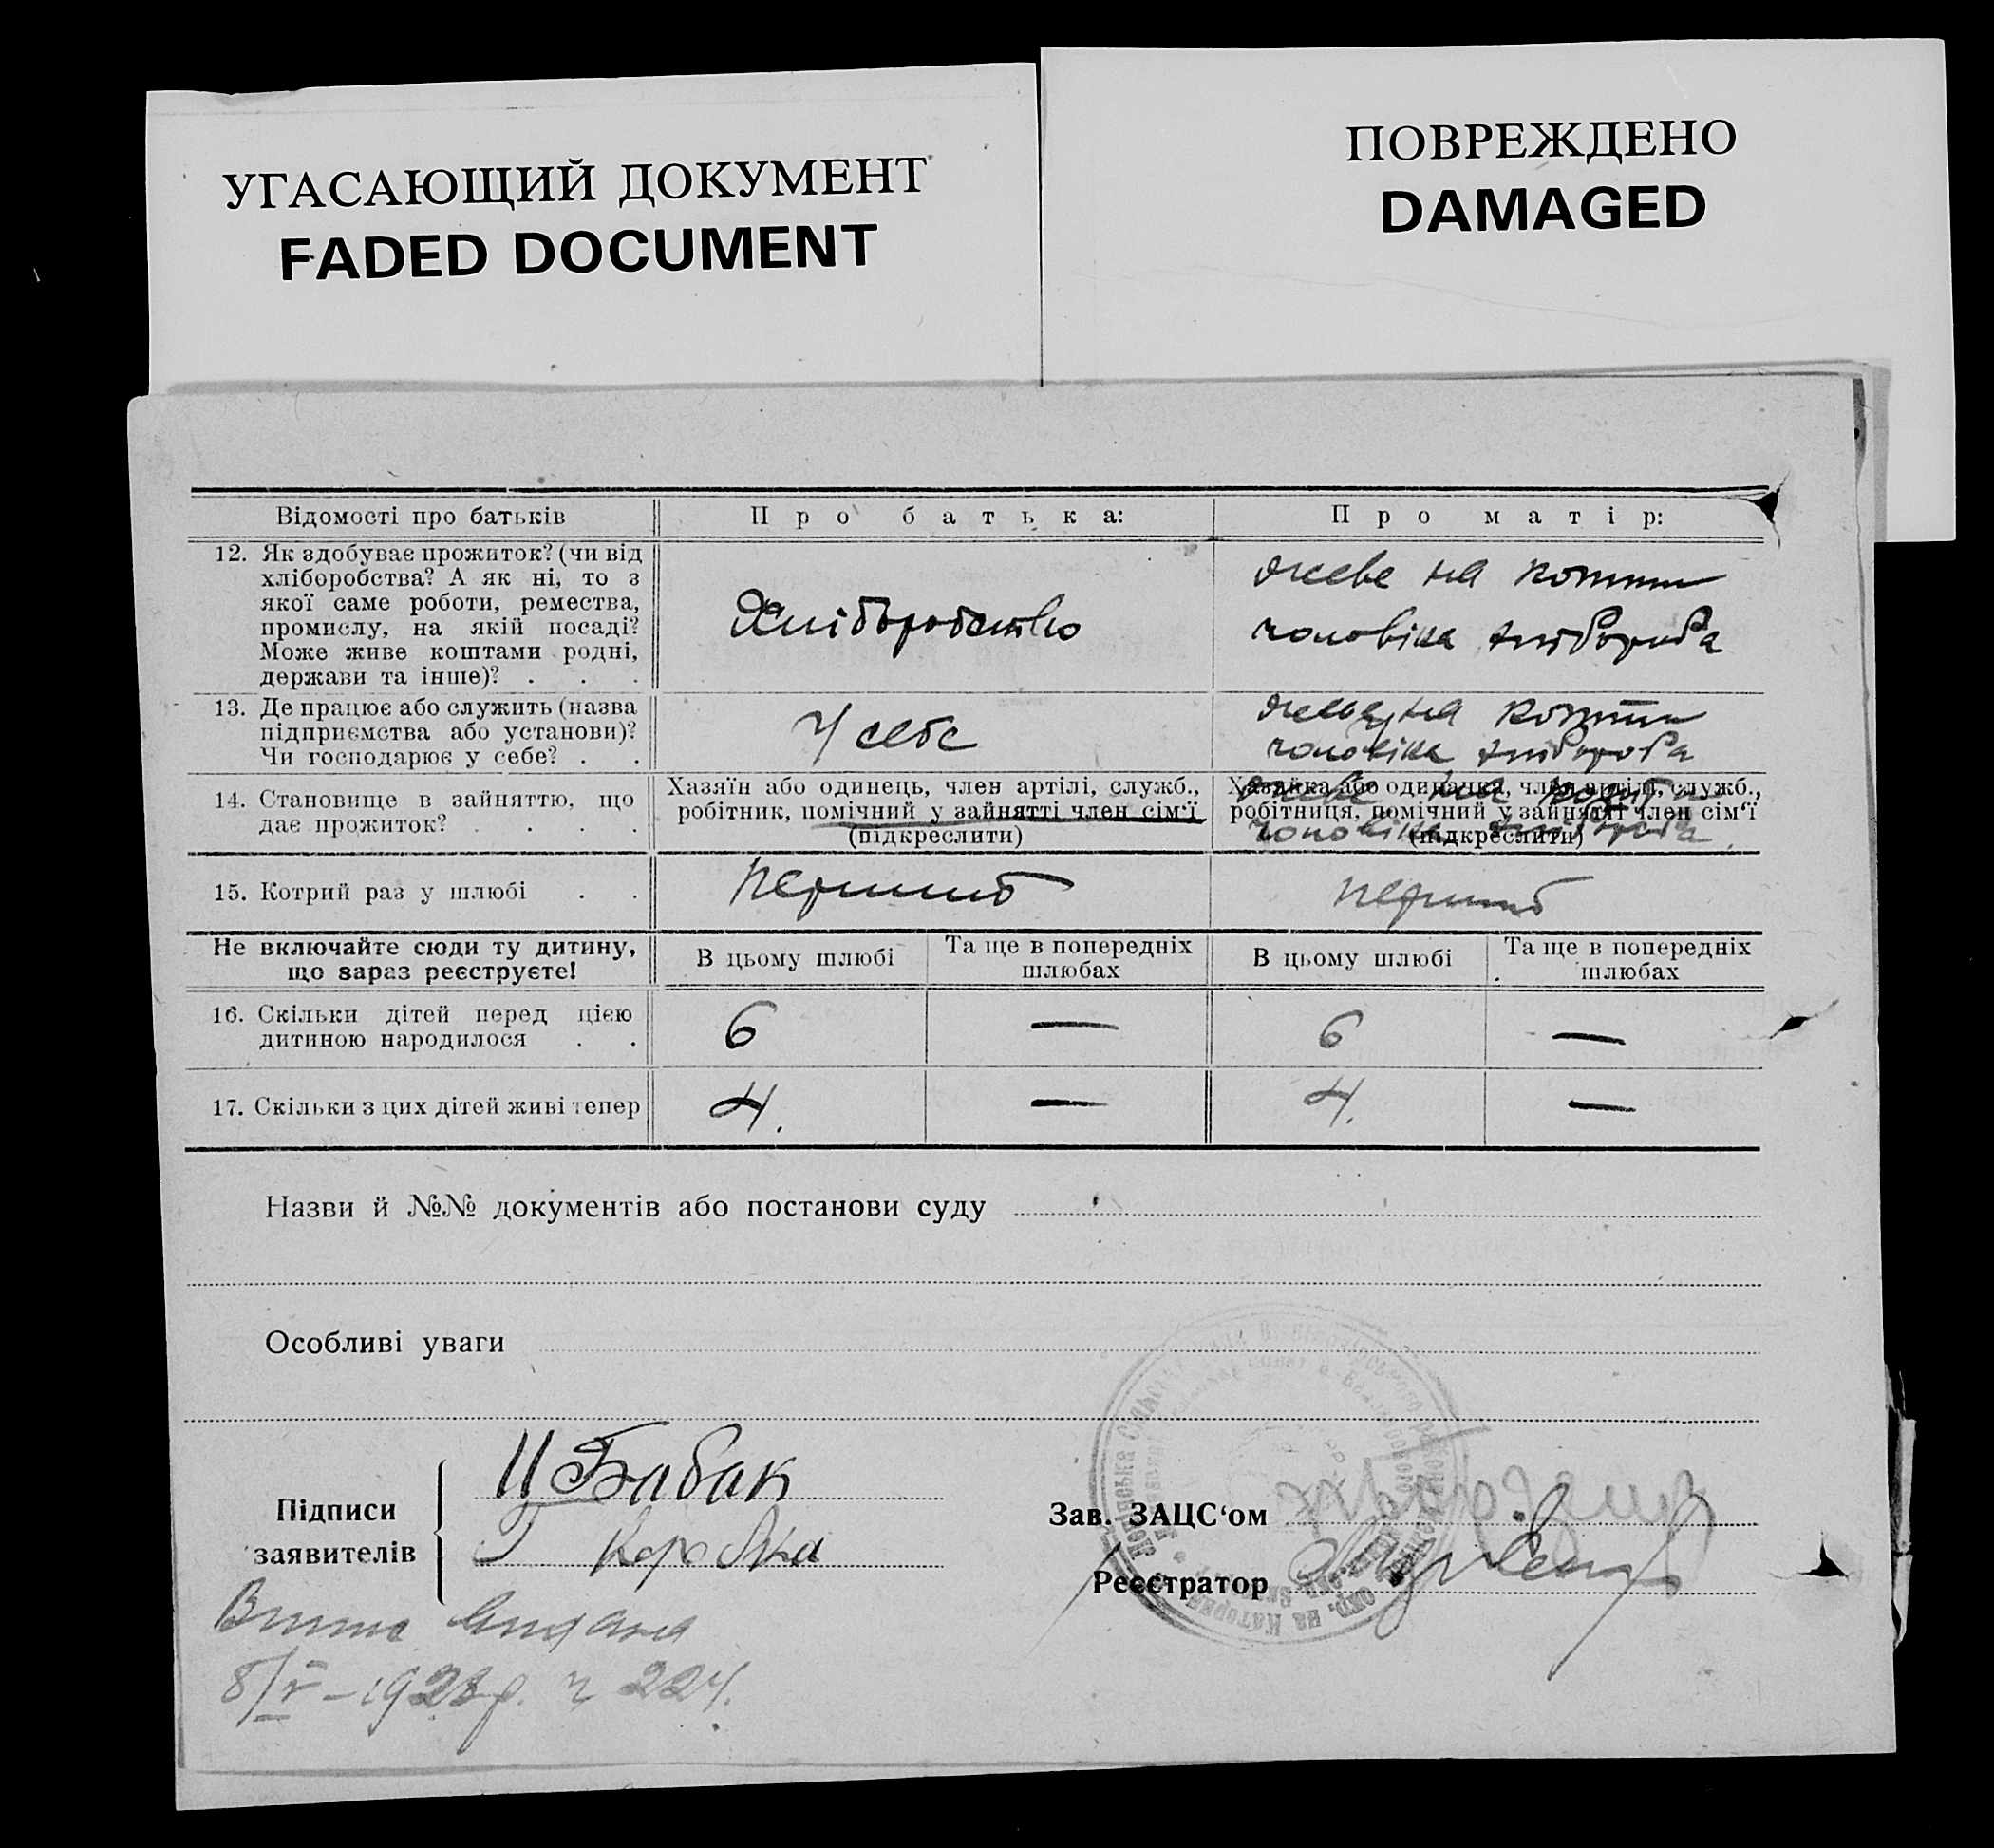 УГАСАЮЩИЙ ДОКУМЕНТ
FADED DOCUMENT
ПОВРЕЖДЕНО
DAMAGED
Відомості про батьків
Про батька:
Про матір:
12. Як здобуває прожиток? (чи від
хліборобства? А як ні, то з
якої саме роботи, ремества,
промислу, на якій посаді?
Може живе коштами родні,
держави та інше)? . . .
Хліборобство
живе на кошти
чоловіка хлібороба
13. Де працює або служить (назва
підприємства або установи)?
Чи господарює у себе? . .
У себе
живе на кошти
чоловіка хлібороба
14. Становище в зайняттю, що
дає прожиток? . . . .
Хазяїн або одинець, член артілі, служб.,
робітник, помічний у зайнятті член сім'ї
(підкреслити)
Хазяйка або одиначка, член артілі, служб.,
робітниця, помічний у зайнятті член сім'ї
(підкреслити)
живе на кошти
чоловіка хлібороба
15. Котрий раз у шлюбі . .
перший
перший
Не включайте сюди ту дитину,
що зараз реєструєте!
В цьому шлюбі
Та ще в попередніх
шлюбах
В цьому шлюбі
Та ще в попередніх
шлюбах
16. Скільки дітей перед цією
дитиною народилося . .
6
—
6
—
17. Скільки з цих дітей живі тепер
4.
—
4.
—
Назви й №№ документів або постанови суду
Особливі уваги
Підписи
заявителів
И Бабак
Г Коробка
Зав. ЗАЦС'ом
Реєстратор
8/V – 1928 р. ч 224.